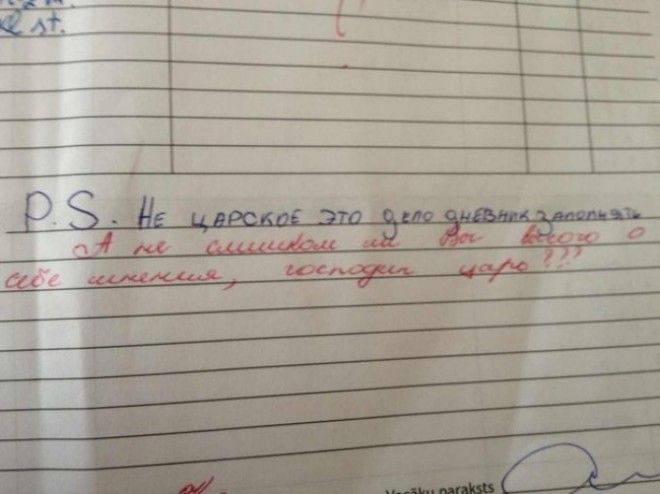 st.
P.S. НЕ ЦАРСКОЕ ЭТО ДЕЛО ДНЕВНИК ЗАПОЛНЯТЬ
А не слишком ли Вы высого о
себе мнения, господин царь???
Vecāku paraksts